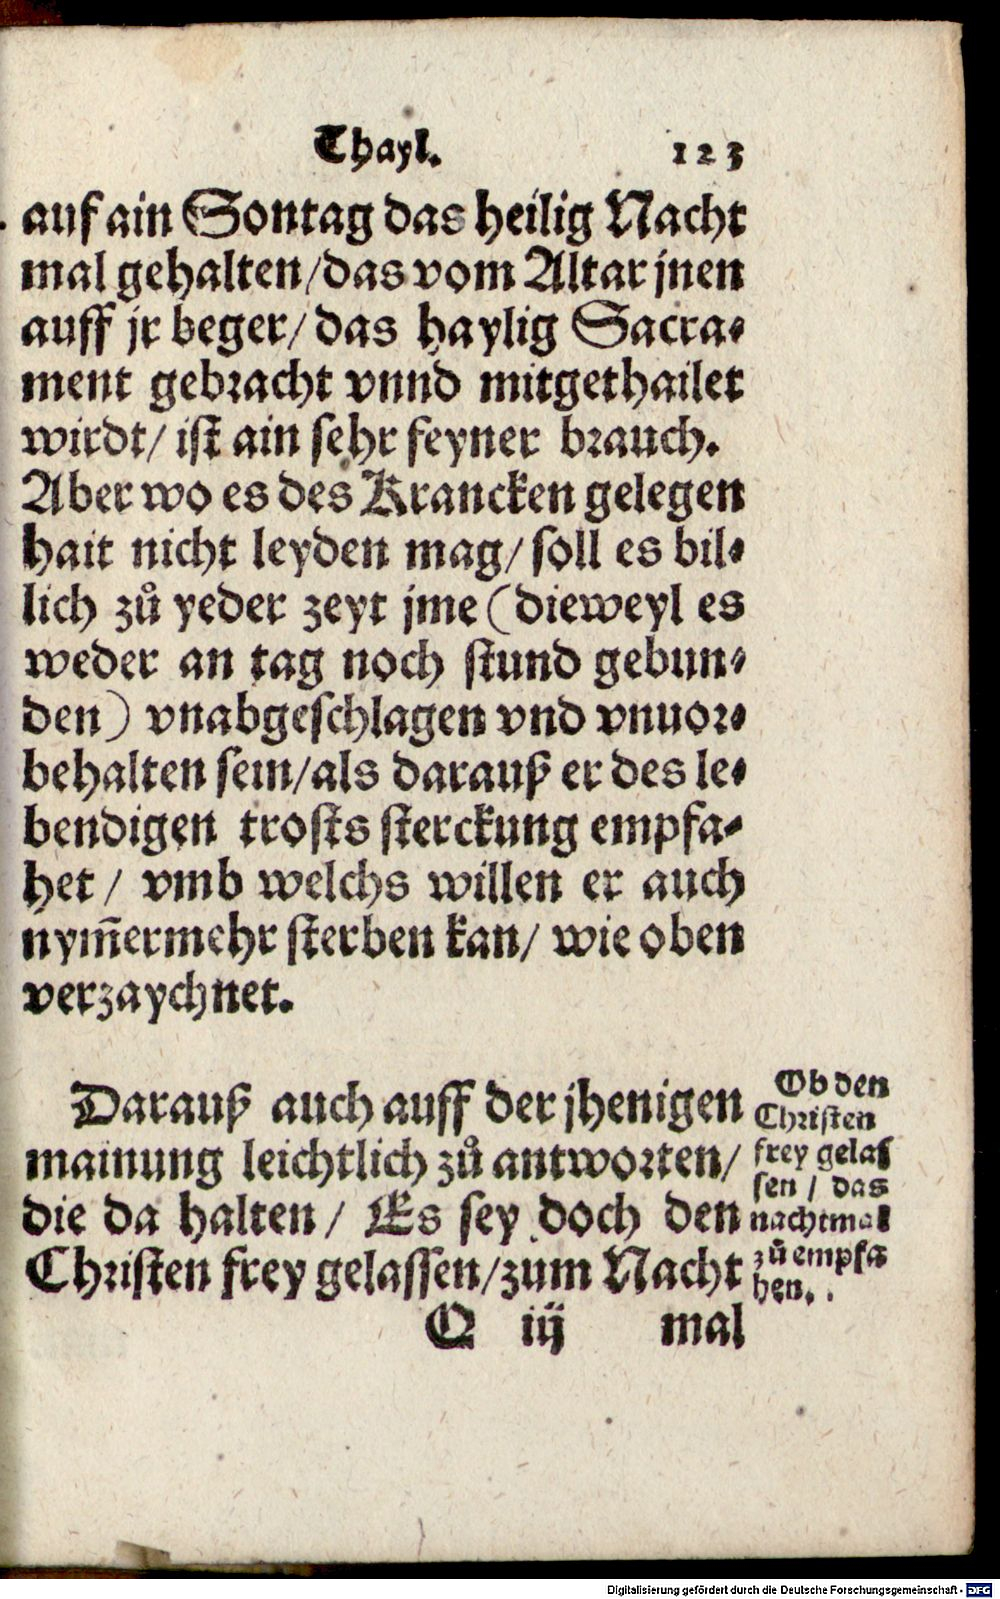 Thayl. 123
auf ain Sontag das heilig Nacht
mal gehalten/das vom Altar jnen
auff jr beger/ das haylig Sacra⸗
ment gebracht vnnd mitgethailet
wirdt/ ist ain sehr feyner brauch.
Aber wo es des Krancken gelegen
hait nicht leyden mag/ soll es bil⸗
lich zů yeder zeyt jme (dieweyl es
weder an tag noch stund gebun⸗
den) vnabgeschlagen vnd vnuor⸗
behalten sein/als darauß er des le⸗
bendigen trosts sterckung empfa⸗
het / vmb welchs willen er auch
nym̄ermehr sterben kan/ wie oben
verzaychnet.
Darauß auch auff der jhenigen
mainung leichtlich zů antworten/
die da halten / Es sey doch den
Christen frey gelassen/zum Nacht
Ob den
Christen
frey gelas
sen / das
nachtmal
zů empfa
hen.
Q iij mal
Digitalisierung gefördert durch die Deutsche Forschungsgemeinschaft - DFG